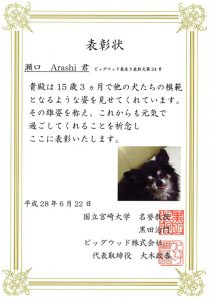 表彰状
瀬口 Arashi 君 ビッグウッド長生き表彰犬第24号
貴殿は15歳3ヵ月で他の犬たちの模範
となるような姿を見せてくれています。
その雄姿を称え、これからも元気で
過ごしてくれることを祈念し
ここに表彰いたします。
平成28年6月22日
国立宮崎大学 名誉教授
黒田治門
ビッグウッド株式会社
代表取締役 大木政春